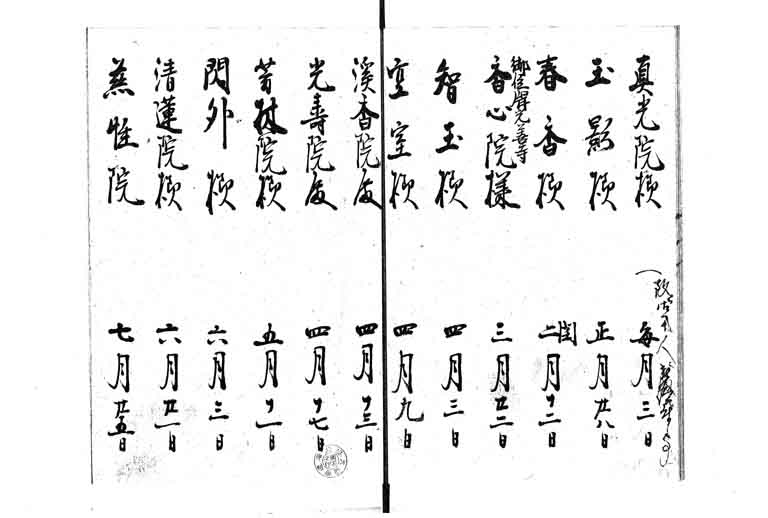 真光院様 毎月三日
玉影様 正月廿八
春香様 閏二月十二日
御位牌光善寺
香心院様 三月廿二日
智玉様 四月三日
空室様 四月九日
溪香院殿 四月十三日
光壽院殿 四月十七日
芳林院様 五月十一日
閃外様 六月三日
清蓮院様 六月廿一日
慈性院 七月廿五日